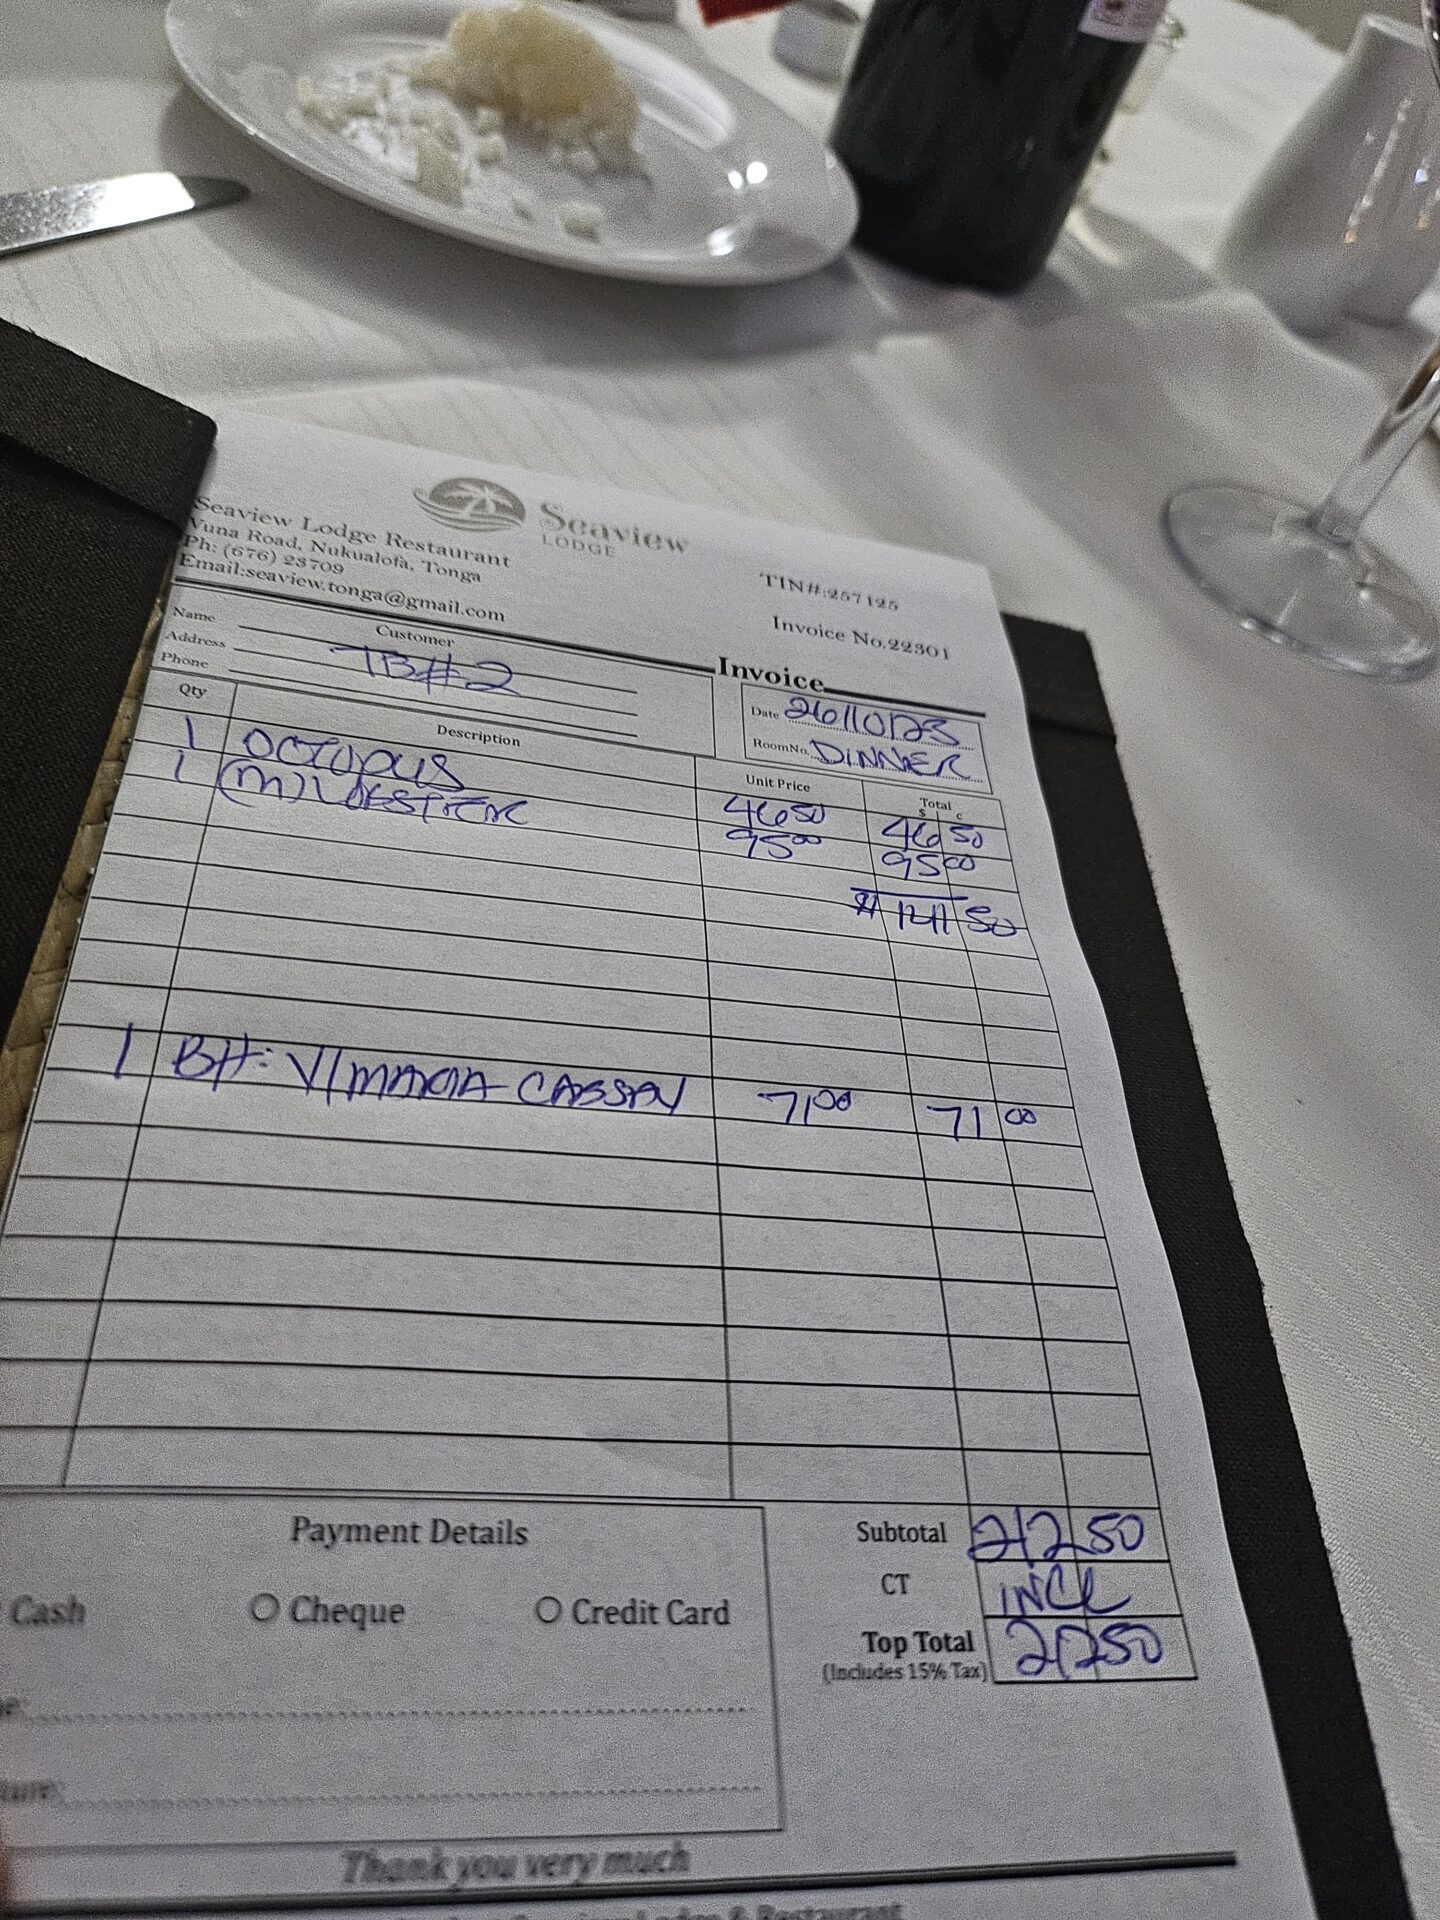 Seaview
LODGE
Seaview Lodge Restaurant
Vuna Road, Nukualofa, Tonga
Ph: (676) 23709
Email:seaview.tonga@gmail.com
TIN#:257125
Invoice No.22301
Invoice
Customer
Name
Address
Phone
TB#2
Date 26/10/23
RoomNo. DINNER
Qty Description Unit Price Total
$ c
1 OCTOPUS 4650 46 50
1 (M) LOBSTER 9500 95 00
$ 141 50
1 BH: V/MARIA 7100 71 00
Subtotal 212 50
CT INCL
Top Total 212 50
(Includes 15% Tax)
Payment Details
Cash Cheque Credit Card
Thank you very much